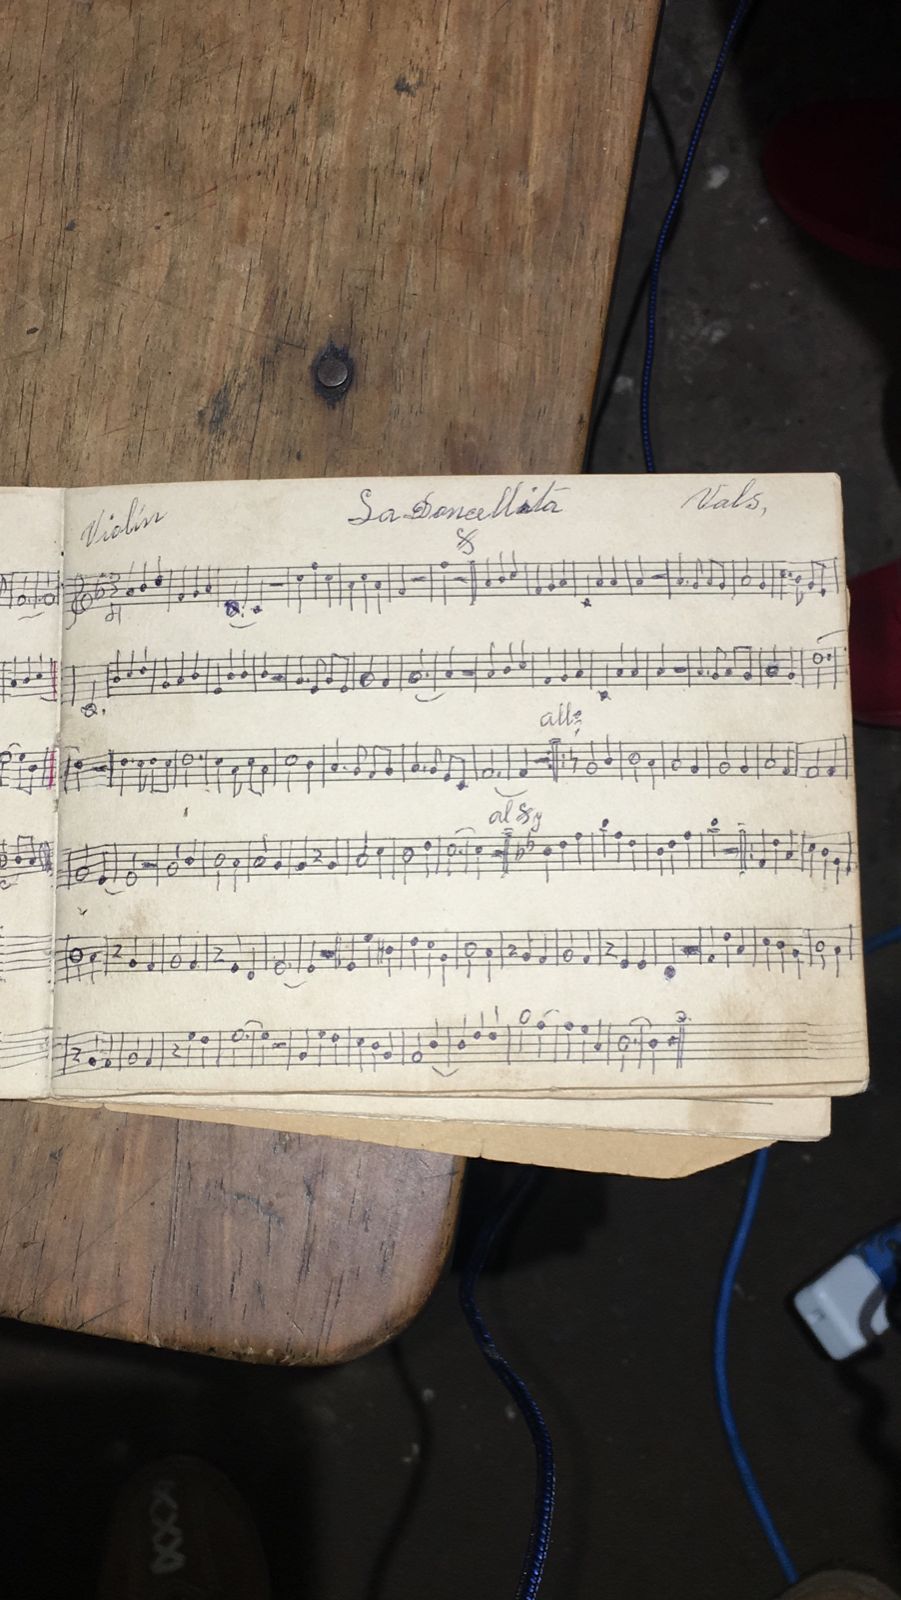 Violin La Doncellita Vals,
al 𝄋 y